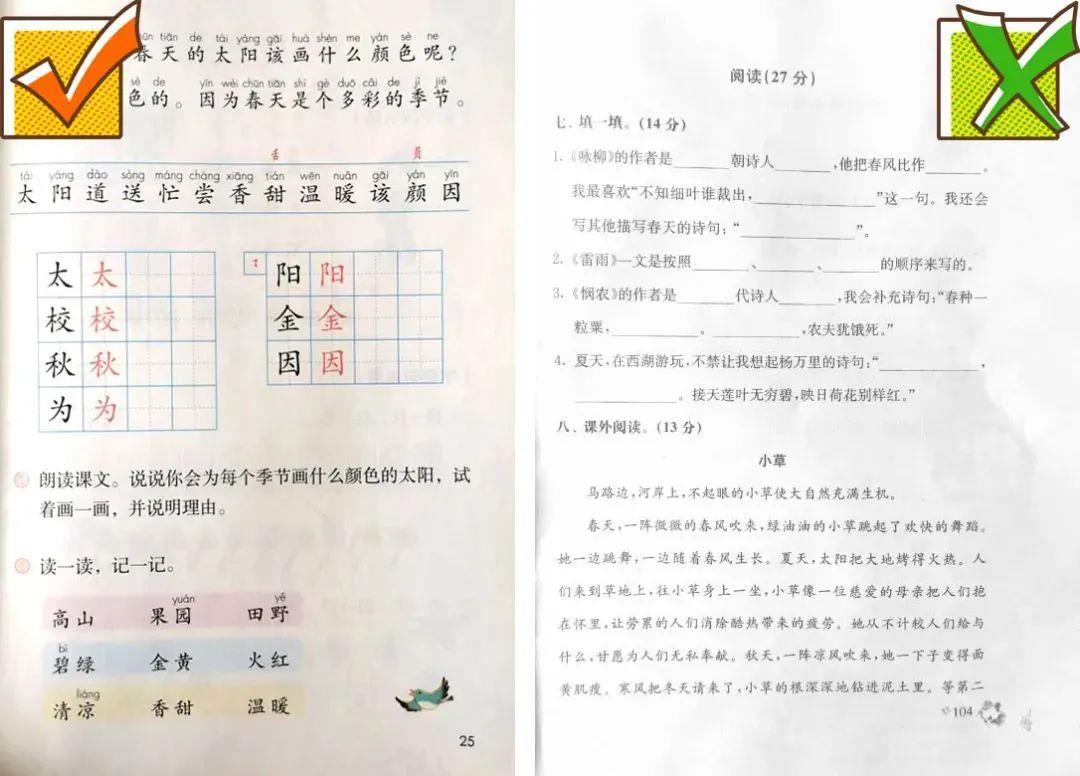 chūn tiān de tài yáng gāi huà shén me yán sè ne
春天的太阳该画什么颜色呢？
sè de yīn wèi chūn tiān shì gè duō cǎi de jì jié
色的。因为春天是个多彩的季节。
舌 页
tài yáng dào sòng máng cháng xiāng tián wēn nuǎn gāi yán yīn
太 阳 道 送 忙 尝 香 甜 温 暖 该 颜 因
太 太
校 校
秋 秋
为 为
㇌ 阳 阳
金 金
因 因
朗读课文。说说你会为每个季节画什么颜色的太阳，试
着画一画，并说明理由。
读一读，记一记。
yuán yě
高山 果园 田野
bì
碧绿 金黄 火红
liáng
清凉 香甜 温暖
25
阅读(27 分)
七、填一填。(14 分)
1.《咏柳》的作者是________朝诗人________,他把春风比作________。
我最喜欢“不知细叶谁裁出,________________”这一句。我还会
写其他描写春天的诗句:“________________”。
2.《雷雨》一文是按照________、________、________的顺序来写的。
3.《悯农》的作者是________代诗人________,我会补充诗句:“春种一
粒粟,____________。____________,农夫犹饿死。”
4. 夏天,在西湖游玩,不禁让我想起杨万里的诗句:“____________,
____________。接天莲叶无穷碧,映日荷花别样红。”
八、课外阅读。(13 分)
小草
马路边,河岸上,不起眼的小草使大自然充满生机。
春天,一阵微微的春风吹来,绿油油的小草跳起了欢快的舞蹈。
她一边跳舞,一边随着春风生长。夏天,太阳把大地烤得火热。人
们来到草地上,往小草身上一坐,小草像一位慈爱的母亲把人们抱
在怀里,让劳累的人们消除酷热带来的疲劳。她从不计较人们给与
什么,甘愿为人们无私奉献。秋天,一阵凉风吹来,她一下子变得面
黄肌瘦。寒风把冬天请来了,小草的根深深地钻进泥土里。等第二
104